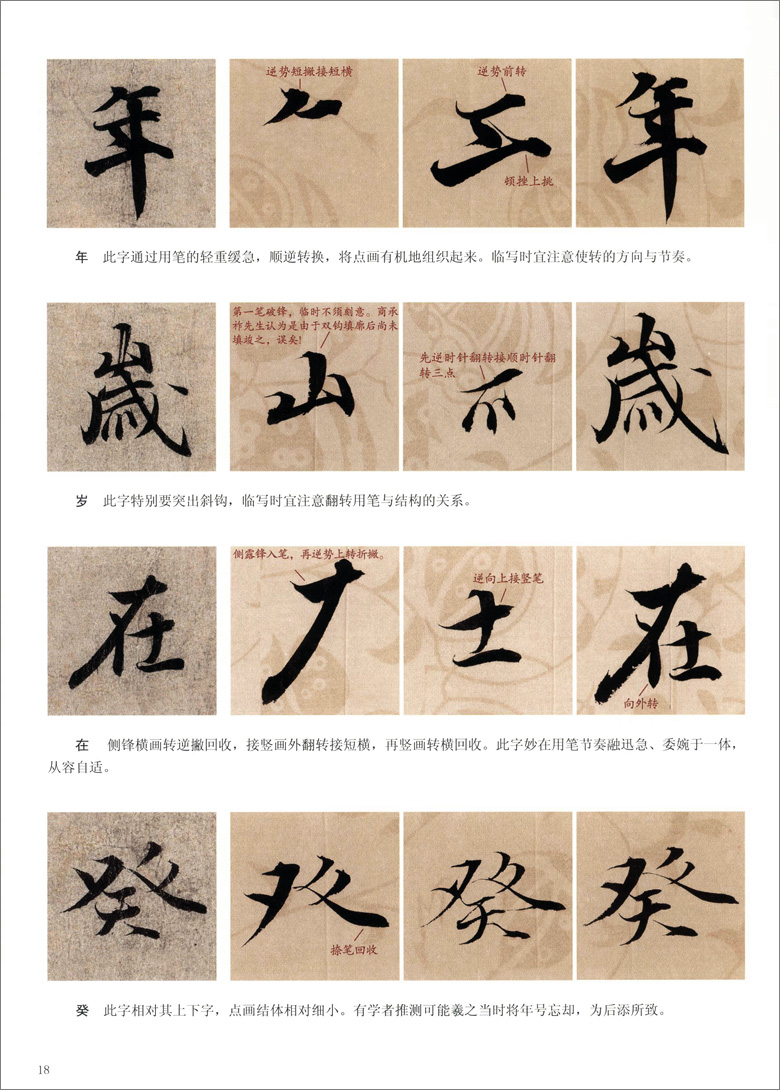 年
逆势短撇接短横
逆势前转
顿挫上挑
工
年
年 此字通过用笔的轻重缓急，顺逆转换，将点画有机地组织起来。临写时宜注意使转的方向与节奏。
歲
第一笔破锋，临时不须刻意。商承
祚先生认为是由于双钩填廓后尚未
填竣之，误矣!
山
先逆时针翻转接顺时针翻
转三点
歲
岁 此字特别要突出斜钩，临写时宜注意翻转用笔与结构的关系。
在
侧露锋入笔，再逆势上转折撇。
逆向上接竖笔
土
在
向外转
在 侧锋横画转逆撇回收，接竖画外翻转接短横，再竖画转横回收。此字妙在用笔节奏融迅急、委婉于一体，
从容自适。
癸
捺笔回收
癸
癸
癸 此字相对其上下字，点画结体相对细小。有学者推测可能羲之当时将年号忘却，为后添所致。
18